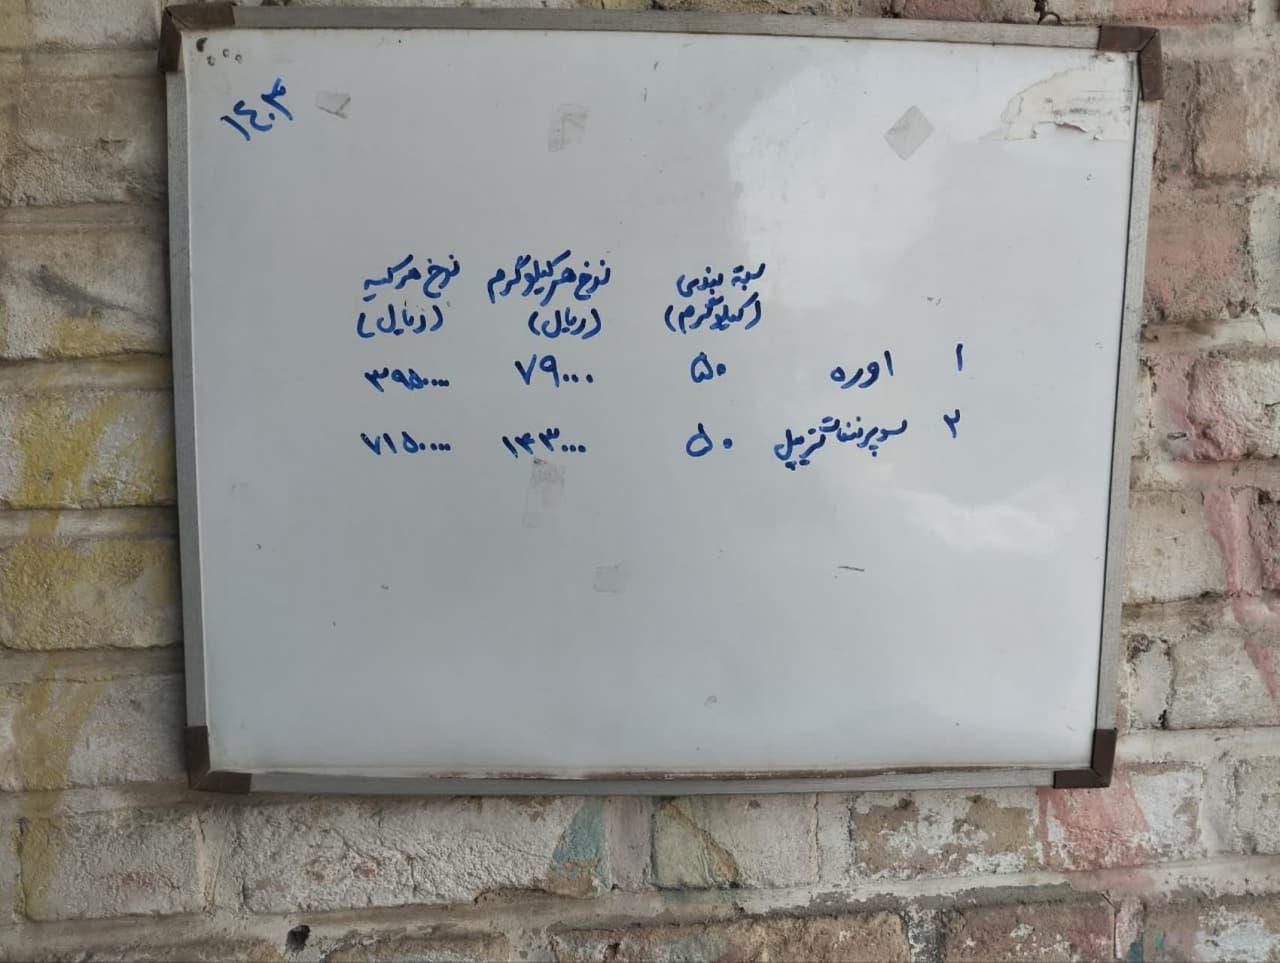 ۱۴۰۳
بسته بندی نرخ هر کیلوگرم نرخ هر کیسه
(کیلوگرم) (ریال) (ریال)
۱ اوره ۵۰ ۷۹۰۰۰ ۳۹۵۰۰۰۰
۲ سوپرفسفات تریپل ۵۰ ۱۴۳۰۰۰ ۷۱۵۰۰۰۰